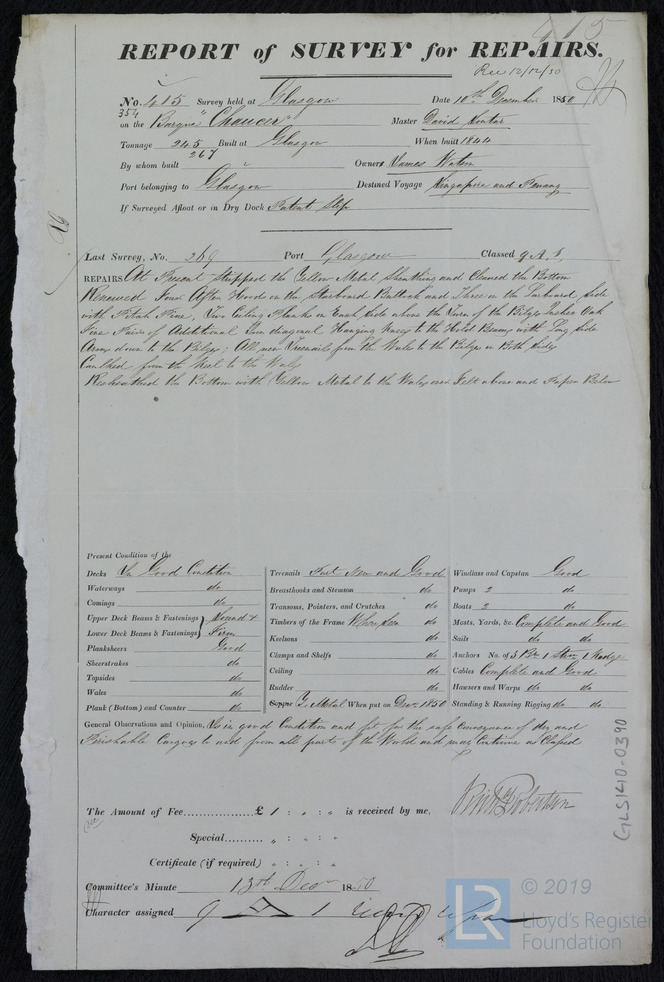 415
REPORT of SURVEY for REPAIRS.
Rec 12/12/50
No. 415 Survey held at Glasgow Date 10th December 1850
354
on the Barque "Chaucer" Master David
Tonnage 245 Built at Glasgow When built 1844
267
By whom built " Owners James Watson
Port belonging to Glasgow Destined Voyage Singapore and Penang
If Surveyed Afloat or in Dry Dock Patent Slip
Last Survey, No. 269 Port Glasgow Classed 9 A 1
REPAIRS At Present Stripped the Yellow Metal Sheathing and Cleaned the Bottom
Renewed Four After Hood on the Starboard Buttock and Three on the Larboard Side
with Pitch Pine, Two Ceiling Planks on Each Side above the Turn of the Bilge Oak
Five Pairs of Additional Iron diagonal Hanging Knees to the Hold Beams with Long Side
Arms down to the Bilges; All new Treenails from the Wales to the Bilges on Both Sides
Caulked from the Keel to the Wales
Resheathed the Bottom with Yellow Metal to the Wales over Felt above and Paper Below
Present Condition of the
Decks In Good Condition
Waterways do
Comings do
Upper Deck Beams & Fastenings } Sound &
Lower Deck Beams & Fastenings } Firm
Planksheers Good
Sheerstrakes do
Topsides do
Wales do
Plank (Bottom) and Counter do
Treenails Part New and Good
Breasthooks and Stemson do
Transoms, Pointers, and Crutches do
Timbers of the Frame When Seen
Keelsons do
Clamps and Shelfs do
Ceiling do
Rudder do
Copper Y. Metal When put on Decr 1850
Windlass and Capstan Good
Pumps 2 do
Boats 2 do
Masts, Yards, &c. Complete and Good
Sails do do
Anchors No. of 3 Br 1 Stm 1 Kedge
Cables Complete and Good
Hawsers and Warps do do
Standing & Running Rigging do do
General Observations and Opinion, Is in good Condition and fit for the safe Conveyance of dry and
Perishable Cargoes to and from all parts of the World and may Continue as Classed
The Amount of Fee £ 1 : " : " is received by me, Robertson
Special " : " : "
Certificate (if required) " : " : "
Committee's Minute 13th Decr 1850
Character assigned 9 A 1
GLS1410-0390
LR
© 2019
Lloyd's Register
Foundation